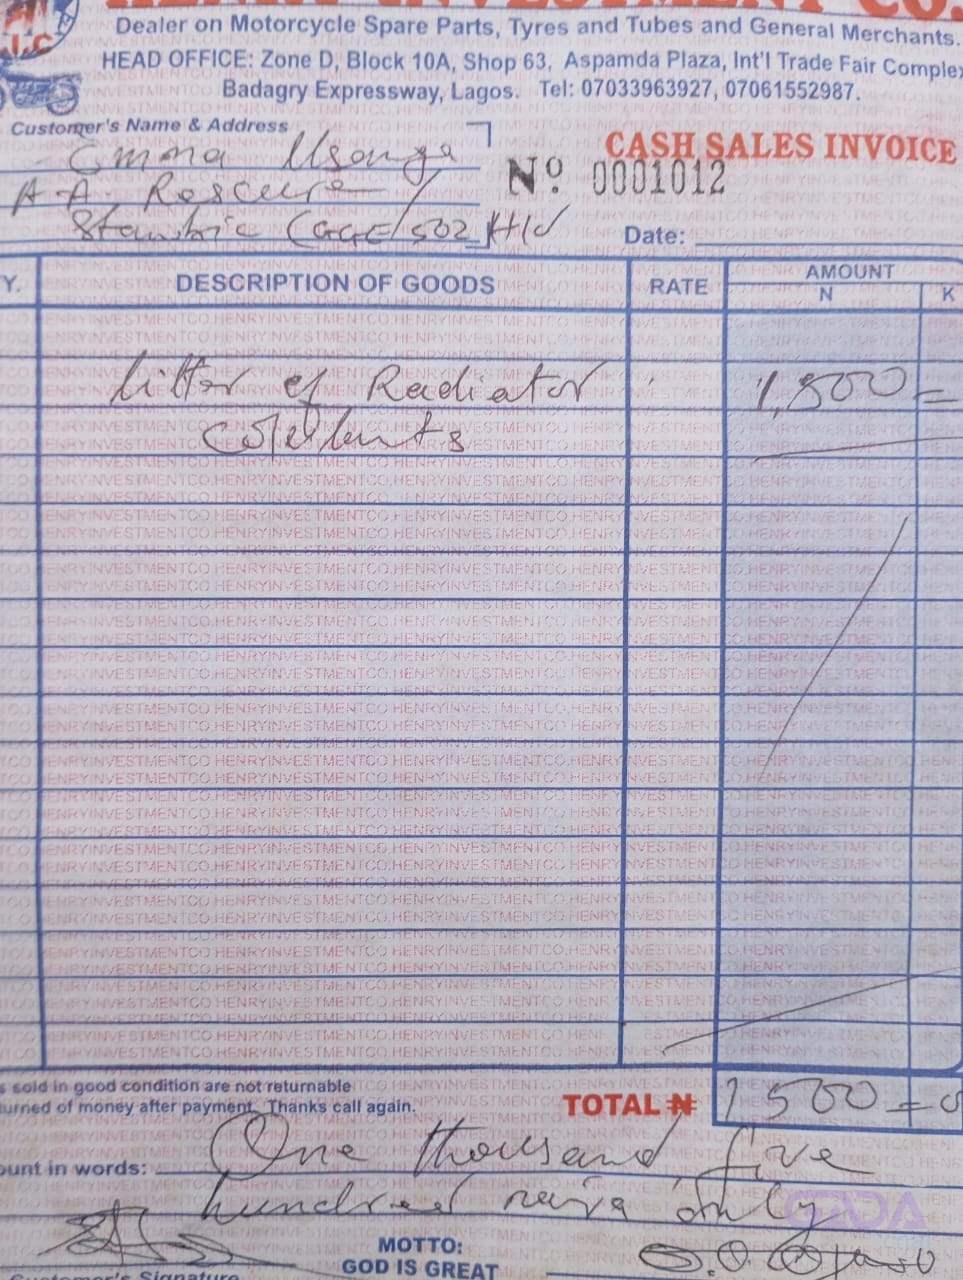 HENRY INVESTMENT CO.
Dealer on Motorcycle Spare Parts, Tyres and Tubes and General Merchants.
HEAD OFFICE: Zone D, Block 10A, Shop 63, Aspamda Plaza, Int'l Trade Fair Complex
Badagry Expressway, Lagos. Tel: 07033963927, 07061552987.
Customer's Name & Address
CASH SALES INVOICE
Emma Usanga
No. 0001012
A.A. Rescure
Stanbic (GGE/502 HW
Date:
Y. DESCRIPTION OF GOODS RATE AMOUNT
N K
litter of Radiator 1,500=
Coollants
s sold in good condition are not returnable
turned of money after payment. Thanks call again.
TOTAL N 1500=0
ount in words: One thousand five
hundred naira only
GIDA
MOTTO:
GOD IS GREAT
Customer's Signature